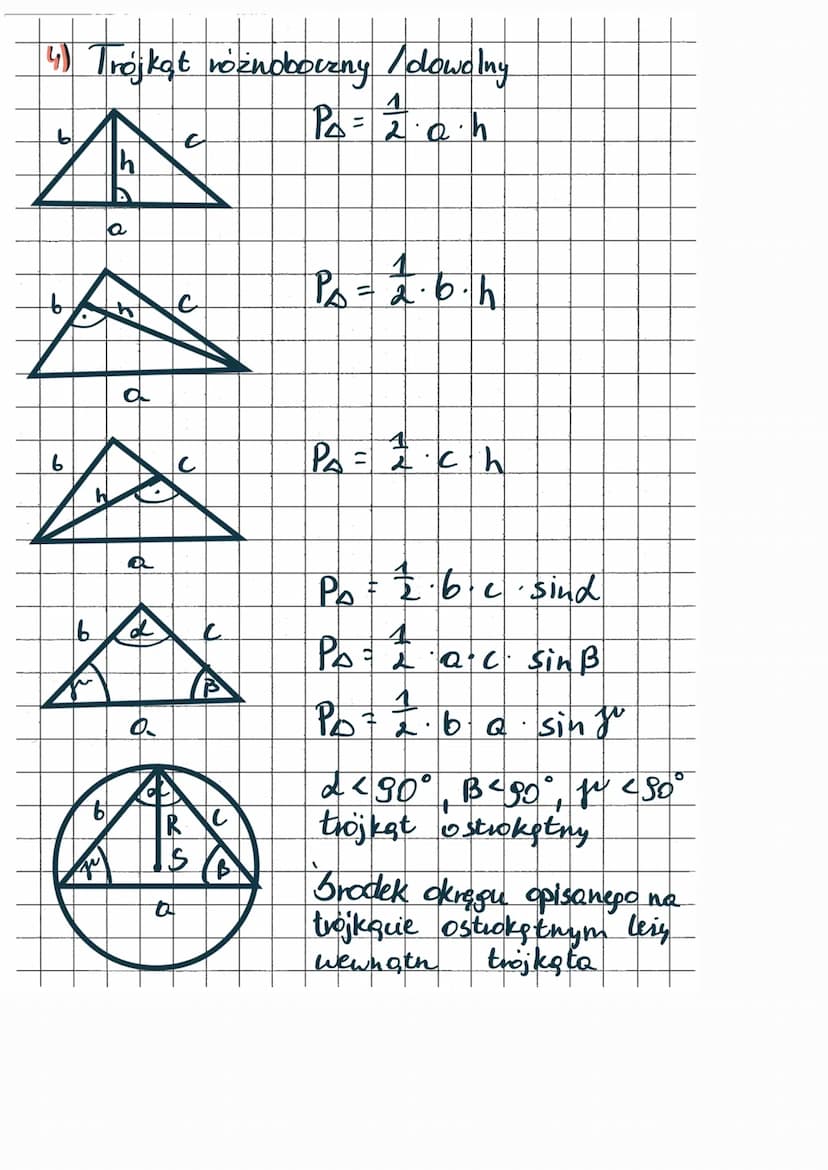 4) Trójkąt różnoboczny /dowolny
b c h a
P△ = 1/2 · a · h
b h c a
P△ = 1/2 · b · h
b c h a
P△ = 1/2 · c · h
P△ = 1/2 · b · c · sin α
b α c
P△ = 1/2 · a · c · sin β
γ β
a
P△ = 1/2 · b · a · sin γ
α < 90°, β < 90°, γ < 90°
b α c R
trójkąt ostrokątny
γ S β
a
Środek okręgu opisanego na
trójkącie ostrokątnym leży
wewnątrz trójkąta